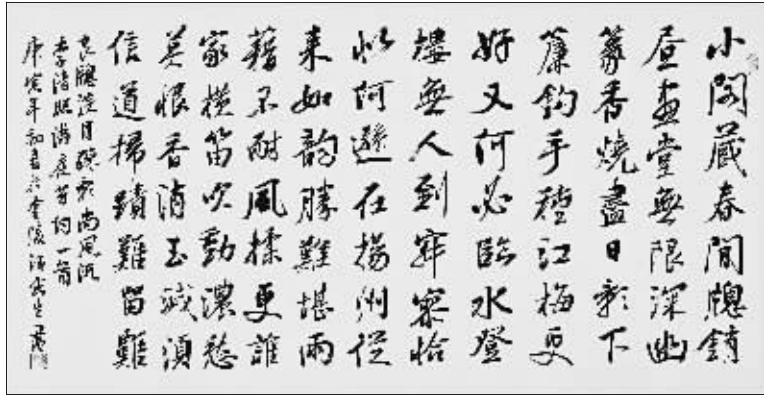 小閣藏春閒牕鎖
晝畫堂無限深幽
篆香燒盡日影下
簾鈎手種江梅更
好又何必臨水登
樓無人到寂寥恰
似何遜在揚州從
來如韻勝難堪雨
藉不耐風揉更誰
家橫笛吹動濃愁
莫恨香消玉減須
信道掃蹟難留難
良牕淡月疎影尚風流
李清照滿庭芳詞一首
庚寅年初春於金陵